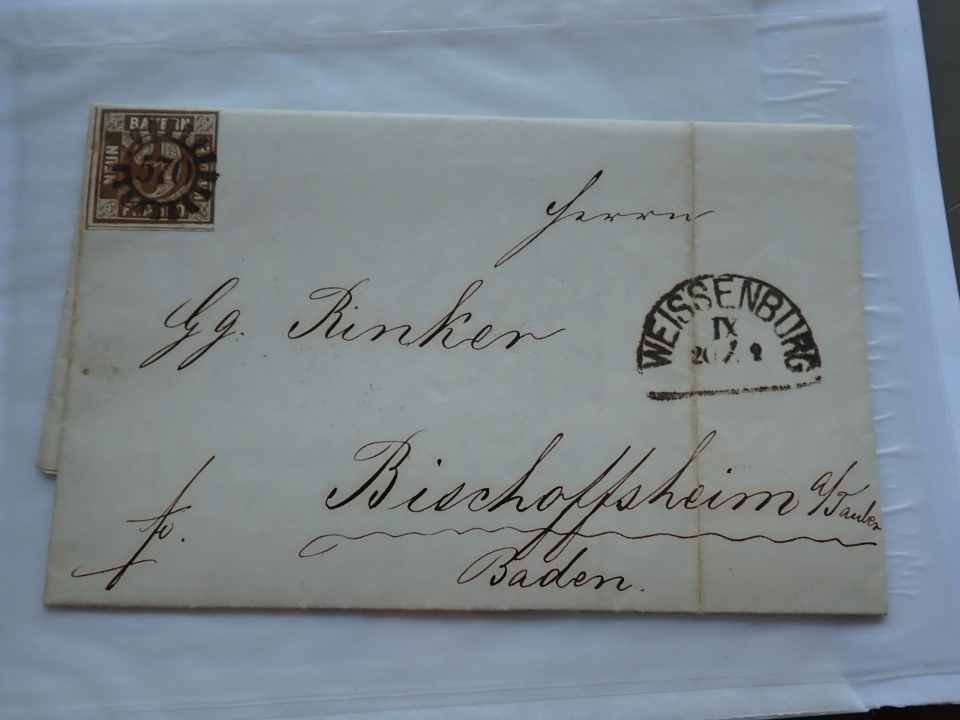 BAYERN
NEUN
9
570
Herrn
Gg. Rinker
WEISSENBURG
IX
20/2
Bischoffsheim a/Tauber
fr.
Baden.